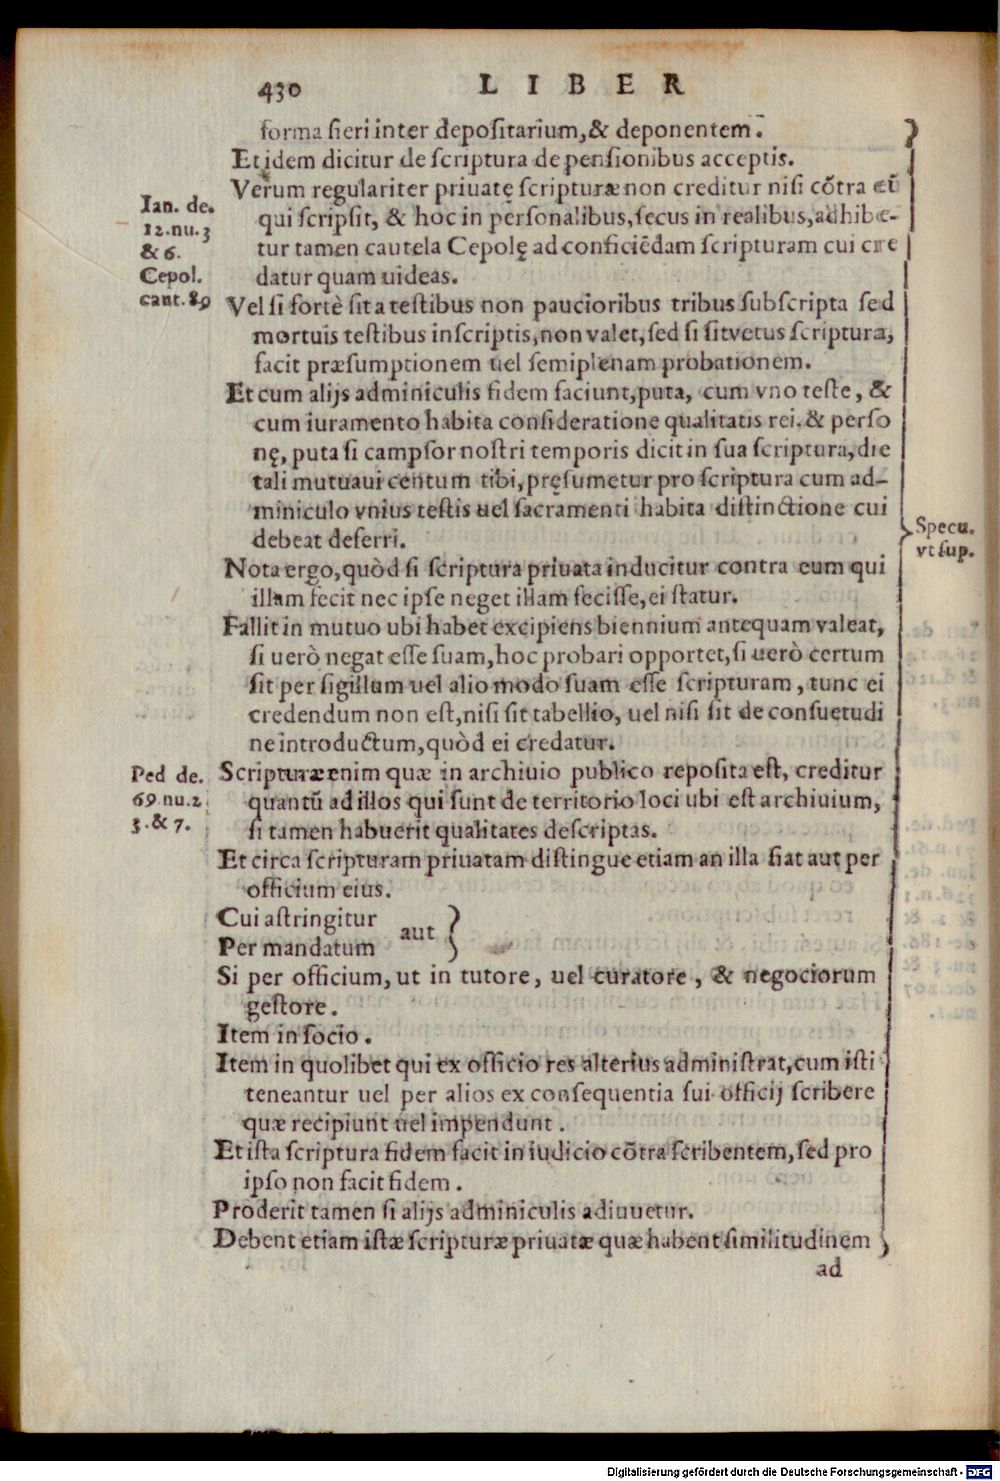 430 LIBER
forma fieri inter depositarium,& deponentem.
Et idem dicitur de scriptura de pensionibus acceptis.
Verum regulariter priuatę scripturæ non creditur nisi cõtra eũ
qui scripsit, & hoc in personalibus, secus in realibus, adhibe-
tur tamen cautela Cepolę ad conficiẽdam scripturam cui cre
datur quam uideas.
Ian. de.
12.nu.3
& 6.
Cepol.
caut. 89
Vel si fortè sit a testibus non paucioribus tribus subscripta sed
mortuis testibus inscriptis, non valet, sed si sit vetus scriptura,
facit præsumptionem uel semiplenam probationem.
Et cum alijs adminiculis fidem faciunt, puta, cum vno teste, &
cum iuramento habita consideratione qualitatis rei. & perso
nę, puta si campsor nostri temporis dicit in sua scriptura, die
tali mutuaui centum tibi, pręsumetur pro scriptura cum ad-
miniculo vnius testis uel sacramenti habita distinctione cui
debeat deferri.
Specu.
vt sup.
Nota ergo, quòd si scriptura priuata inducitur contra eum qui
illam fecit nec ipse neget illam fecisse, ei statur.
Fallit in mutuo ubi habet excipiens biennium antequam valeat,
si uerò negat esse suam, hoc probari opportet, si uerò certum
sit per sigillum uel alio modo suam esse scripturam, tunc ei
credendum non est, nisi sit tabellio, uel nisi sit de consuetudi
ne introductum, quòd ei credatur.
Scripturæ enim quæ in archiuio publico reposita est, creditur
quantũ ad illos qui sunt de territorio loci ubi est archiuium,
si tamen habuerit qualitates descriptas.
Ped de.
69.nu.2
3. & 7.
Et circa scripturam priuatam distingue etiam an illa fiat aut per
officium eius.
Cui astringitur
aut
Per mandatum
Si per officium, ut in tutore, uel curatore, & negociorum
gestore.
Item in socio.
Item in quolibet qui ex officio res alterius administrat, cum isti
teneantur uel per alios ex consequentia sui officij scribere
quæ recipiunt uel impendunt.
Et ista scriptura fidem facit in iudicio cõtra scribentem, sed pro
ipso non facit fidem.
Proderit tamen si alijs adminiculis adiuuetur.
Debent etiam istæ scripturæ priuatæ quæ habent similitudinem
ad
Digitalisierung gefördert durch die Deutsche Forschungsgemeinschaft - DFG